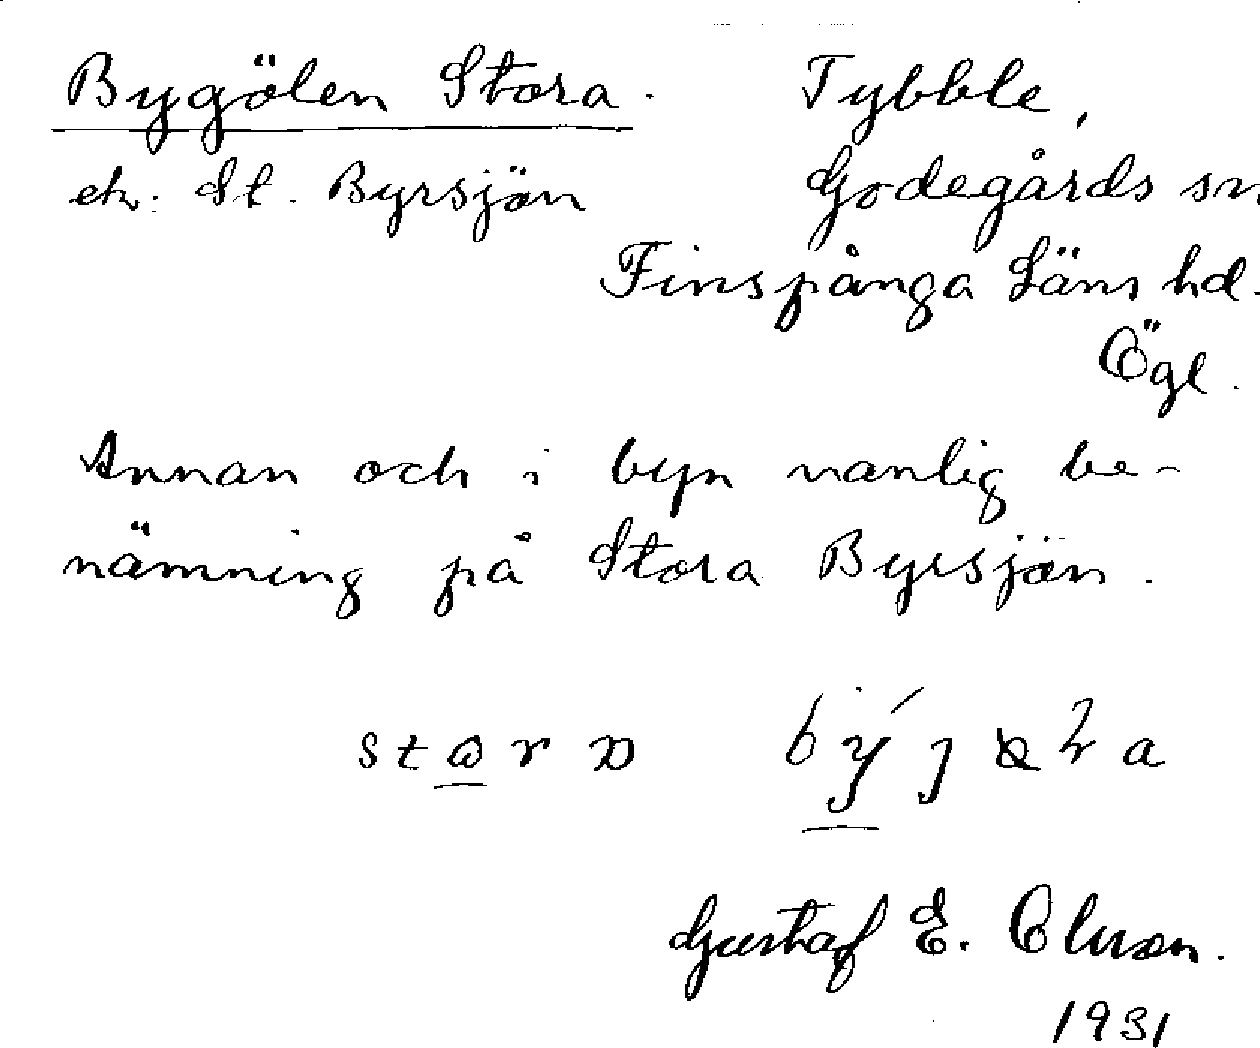 Bygölen Stora.
ek. St. Byrsjön
Tybble,
Godegårds sn
Finspånga Läns hd.
Ögl.
Annan och i byn vanlig be-
nämning på Stora Byrsjön.
Gustaf E. Olsson.
1931